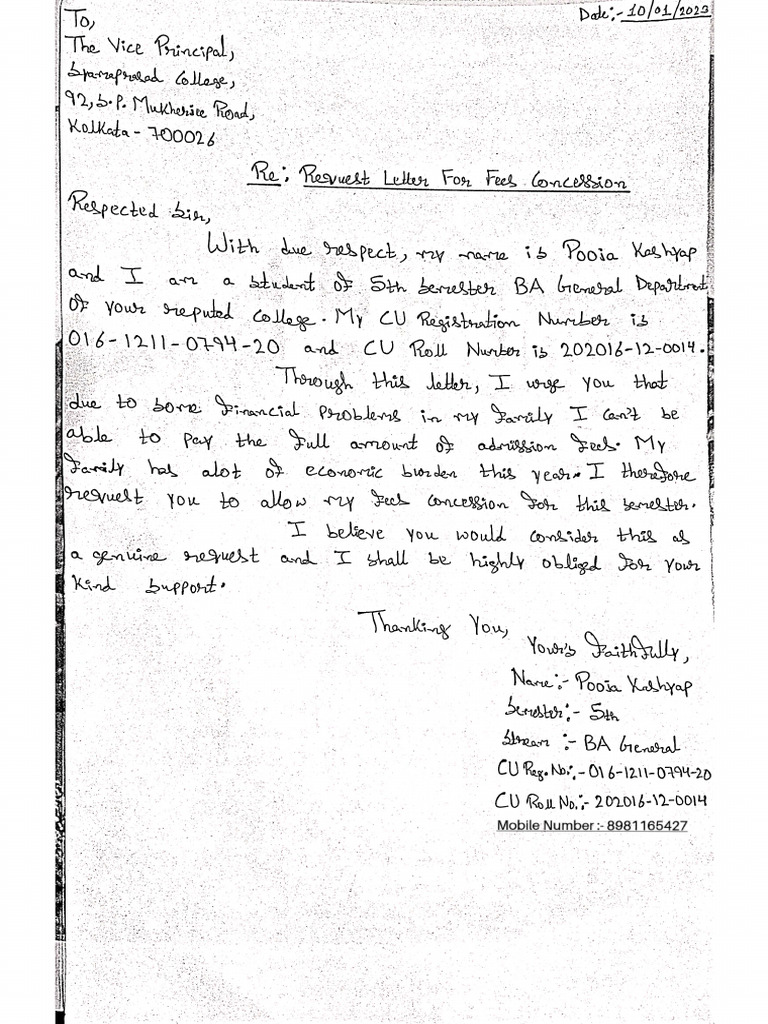 Date:- 10/01/2023
To,
The Vice Principal,
Syamaprasad College,
92, S.P. Mukherjee Road,
Kolkata - 700026
Re: Request Letter For Fees Concession
Respected Sir,
With due respect, my name is Pooja Kashyap
and I am a student of 5th Semester BA General Department
of your reputed college. My CU Registration Number is
016-1211-0794-20 and CU Roll Number is 202016-12-0014.
Through this letter, I urge you that
due to some financial problems in my family I can't be
able to pay the full amount of admission fees. My
family has alot of economic burden this year. I therefore
request you to allow my fees concession for this semester.
I believe you would consider this as
a genuine request and I shall be highly obliged for your
kind support.
Thanking You,
Yours Faithfully,
Name:- Pooja Kashyap
Semester:- 5th
Stream:- BA General
CU Reg. No.:- 016-1211-0794-20
CU Roll No.:- 202016-12-0014
Mobile Number :- 8981165427